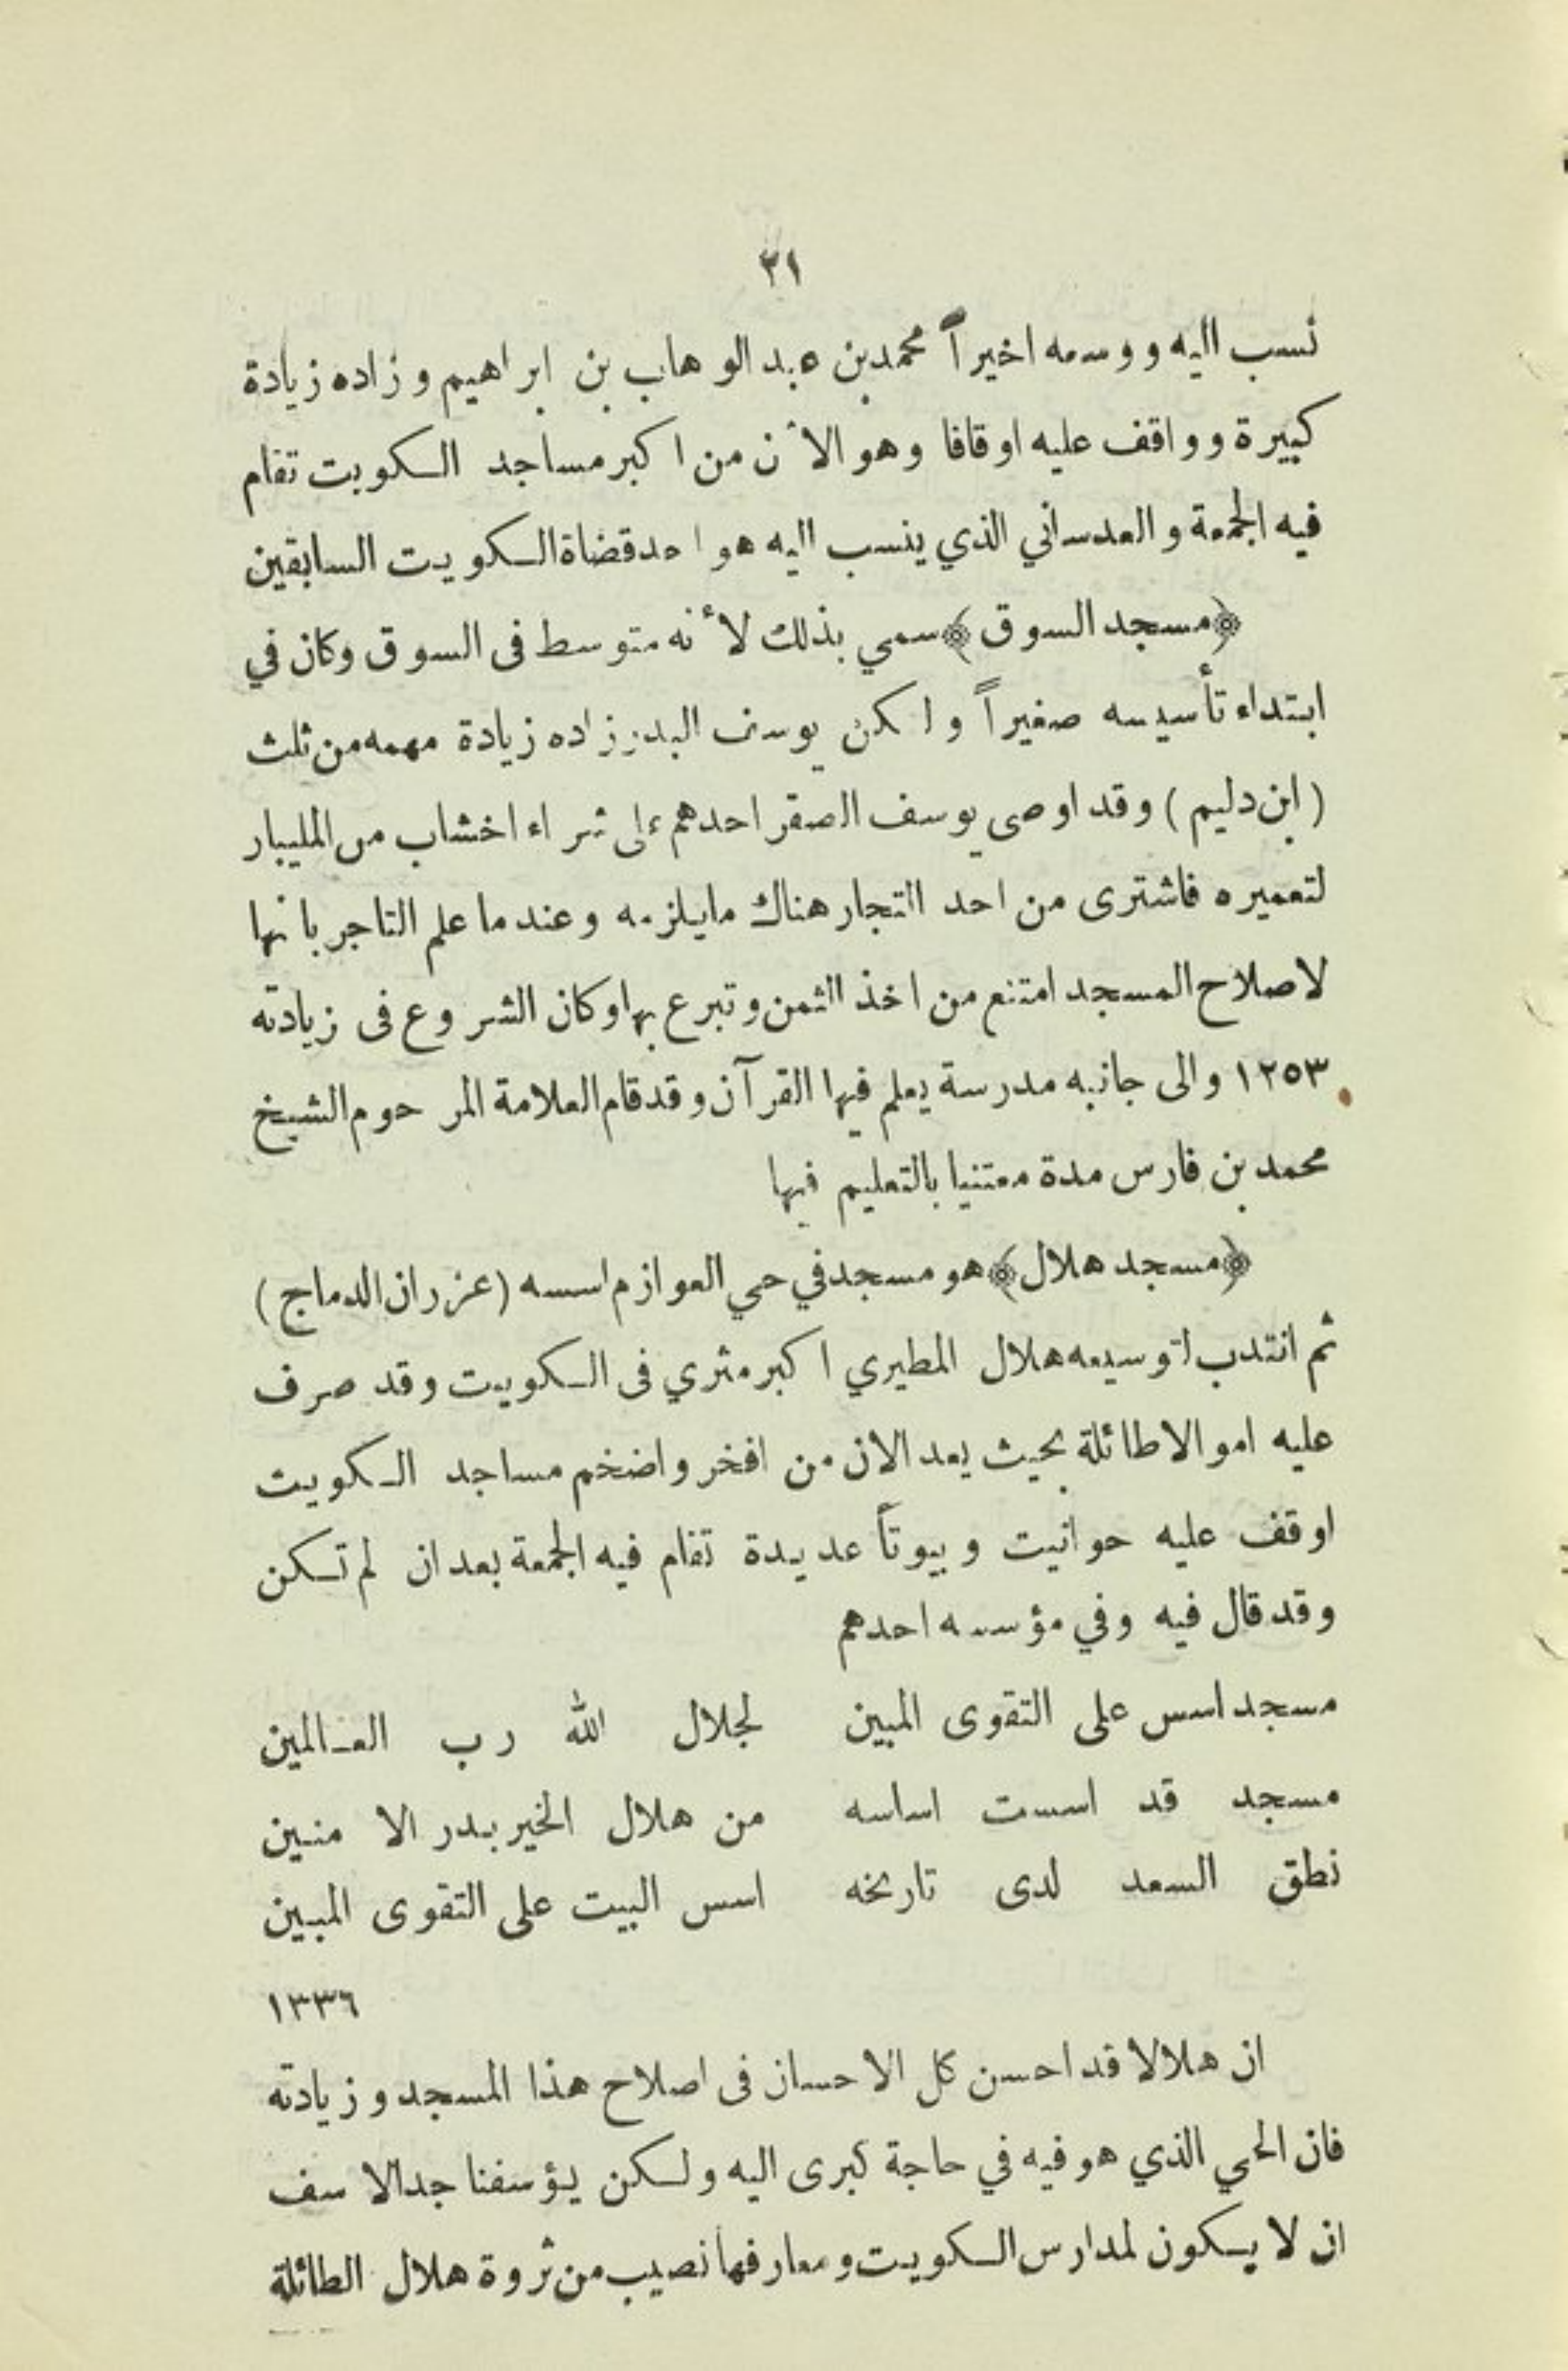 ٣١
نسب اليه ووسعه اخيراً محمد بن عبد الوهاب بن ابراهيم وزاده زيادة
كبيرة وواقف عليه اوقافا وهو الأن من اكبر مساجد الكويت تقام
فيه الجمعة والعدساني الذي ينسب اليه هو احد قضاة الكويت السابقين
﴿مسجد السوق﴾ سمي بذلك لأنه متوسط فى السوق وكان في
ابتداء تأسيسه صغيراً ولكن يوسف البدر زاده زيادة مهمه من ثلث
( ابن دليم ) وقد اوصى يوسف الصقر احدهم على شراء اخشاب من المليبار
لتعميره فاشترى من احد التجار هناك مايلزمه وعندما علم التاجر بانها
لاصلاح المسجد امتنع من اخذ الثمن وتبرع بها وكان الشروع فى زيادته
١٢٥٣ والى جانبه مدرسة يعلم فيها القرآن وقد قام العلامة المرحوم الشيخ
محمد بن فارس مدة معتنيا بالتعليم فيها
﴿مسجد هلال﴾ هو مسجد في حي العوازم اسسه (عزران الدماج )
ثم انتدب لتوسيعه هلال المطيري اكبر مثري فى الكويت وقد صرف
عليه اموالا طائلة بحيث يعد الان من افخر واضخم مساجد الكويت
اوقف عليه حوانيت وبيوتاً عديدة تقام فيه الجمعة بعد ان لم تكن
وقد قال فيه وفي مؤسسه احدهم
مسجد اسس على التقوى المبين لجلال الله رب العالمين
مسجد قد اسست اساسه من هلال الخير بدر الامنين
نطق السعد لدى تاريخه اسس البيت على التقوى المبين
١٣٣٦
ان هلالا قد احسن كل الاحسان فى اصلاح هذا المسجد وزيادته
فان الحي الذي هو فيه في حاجة كبرى اليه ولكن يؤسفنا جد الاسف
ان لا يكون لمدارس الكويت ومعارفها نصيب من ثروة هلال الطائلة